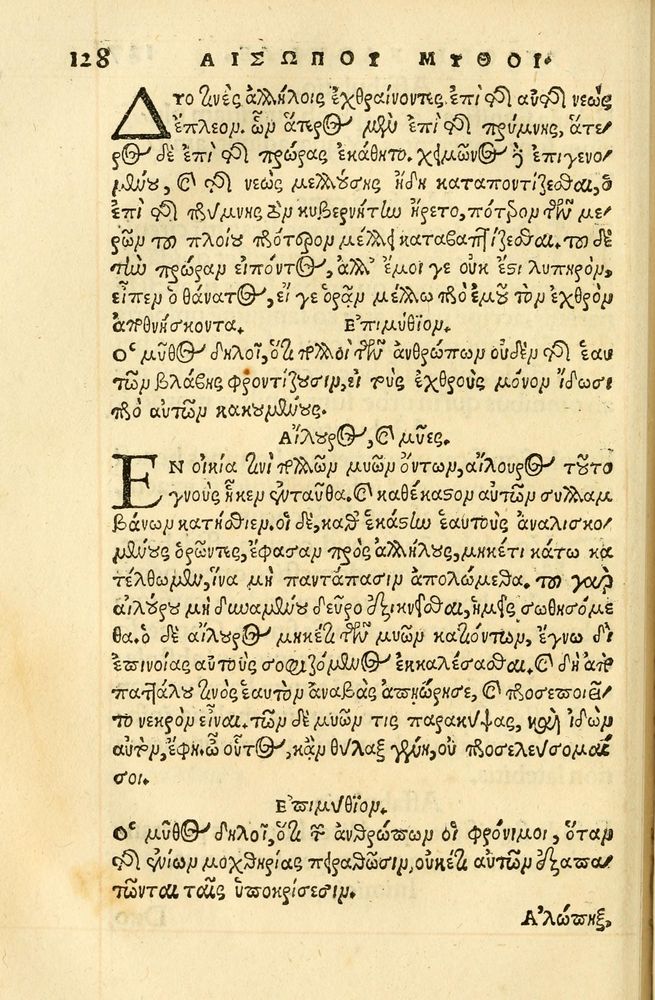 128 ΑΙΣΩΠΟΥ ΜΥΘΟΙ.
ΔΥΟ τινὲς ἀλλήλοις ἐχθραίνοντες ἐπὶ τῆς αὐτῆς νεὼς
ἔπλεον. ὧν ἅτερος μὲν ἐπὶ τῆς πρύμνης, ἅτε-
ρος δὲ ἐπὶ τῆς πρώρας ἐκάθητο. χειμῶνος δὲ ἐπιγενο-
μένου, καὶ τῆς νεὼς μελλούσης ἤδη καταποντίζεσθαι, ὁ
ἐπὶ τῆς πρύμνης τὸν κυβερνήτην ἤρετο, πότερον τῶν με-
ρῶν τοῦ πλοίου πρότερον μέλλει καταβαπτίζεσθαι. τοῦ δὲ
τὴν πρώραν εἰπόντος, ἀλλ' ἔμοι γε οὐκ ἔστι λυπηρὸν,
εἴπερ ὁ θάνατος, εἴ γε ὁρᾷν μέλλω πρὸ ἐμοῦ τὸν ἐχθρὸν
ἀποθνήσκοντα. Ἐπιμύθϊον.
Ὁ μῦθος δηλοῖ, ὅτι πολλοὶ τῶν ἀνθρώπων οὐδὲν τῆς ἑαυ
τῶν βλάβης φροντίζουσιν, εἰ τοὺς ἐχθροὺς μόνον ἴδωσι
πρὸ αὐτῶν κακουμένους.
Αἴλουρος, καὶ μῦες.
ΕΝ οἰκίᾳ τινὶ πολλῶν μυῶν ὄντων, αἴλουρος τοῦτο
γνοὺς ἧκεν ἐνταῦθα. καὶ καθέκαστον αὐτῶν συλλαμ
βάνων κατήσθιεν. οἱ δὲ, καθ' ἑκάστην ἑαυτοὺς ἀναλισκο-
μένους ὁρῶντες, ἔφασαν πρὸς ἀλλήλους, μηκέτι κάτω κα
τέλθωμεν, ἵνα μὴ παντάπασιν ἀπολώμεθα. τοῦ γὰρ
αἰλούρου μὴ δυναμένου δεῦρο ἐξικνεῖσθαι, ἡμεῖς σωθησόμε
θα. ὁ δὲ αἴλουρος μηκέτι τῶν μυῶν κατιόντων, ἔγνω δι'
ἐπινοίας αὐτοὺς σοφιζόμενος ἐκκαλέσασθαι. καὶ δὴ ἀπὸ
παττάλου τινὸς ἑαυτὸν ἀναβὰς ἀπῃώρησε, καὶ προσεποιεῖ
το νεκρὸν εἶναι. τῶν δὲ μυῶν τις παρακύψας, καὶ ἰδὼν
αὐτὸν, ἔφη. ὦ οὗτος, κἂν θύλαξ γένῃ, οὐ προσελεύσομαί
σοι.
Ἐπιμύθϊον.
Ὁ μῦθος δηλοῖ, ὅτι τῶν ἀνθρώπων οἱ φρόνιμοι, ὅταν
τῆς ἐνίων μοχθηρίας πειραθῶσιν, οὐκέτι αὐτῶν ἐξαπα
τῶνται ταῖς ὑποκρίσεσιν.
Ἀλώπηξ,